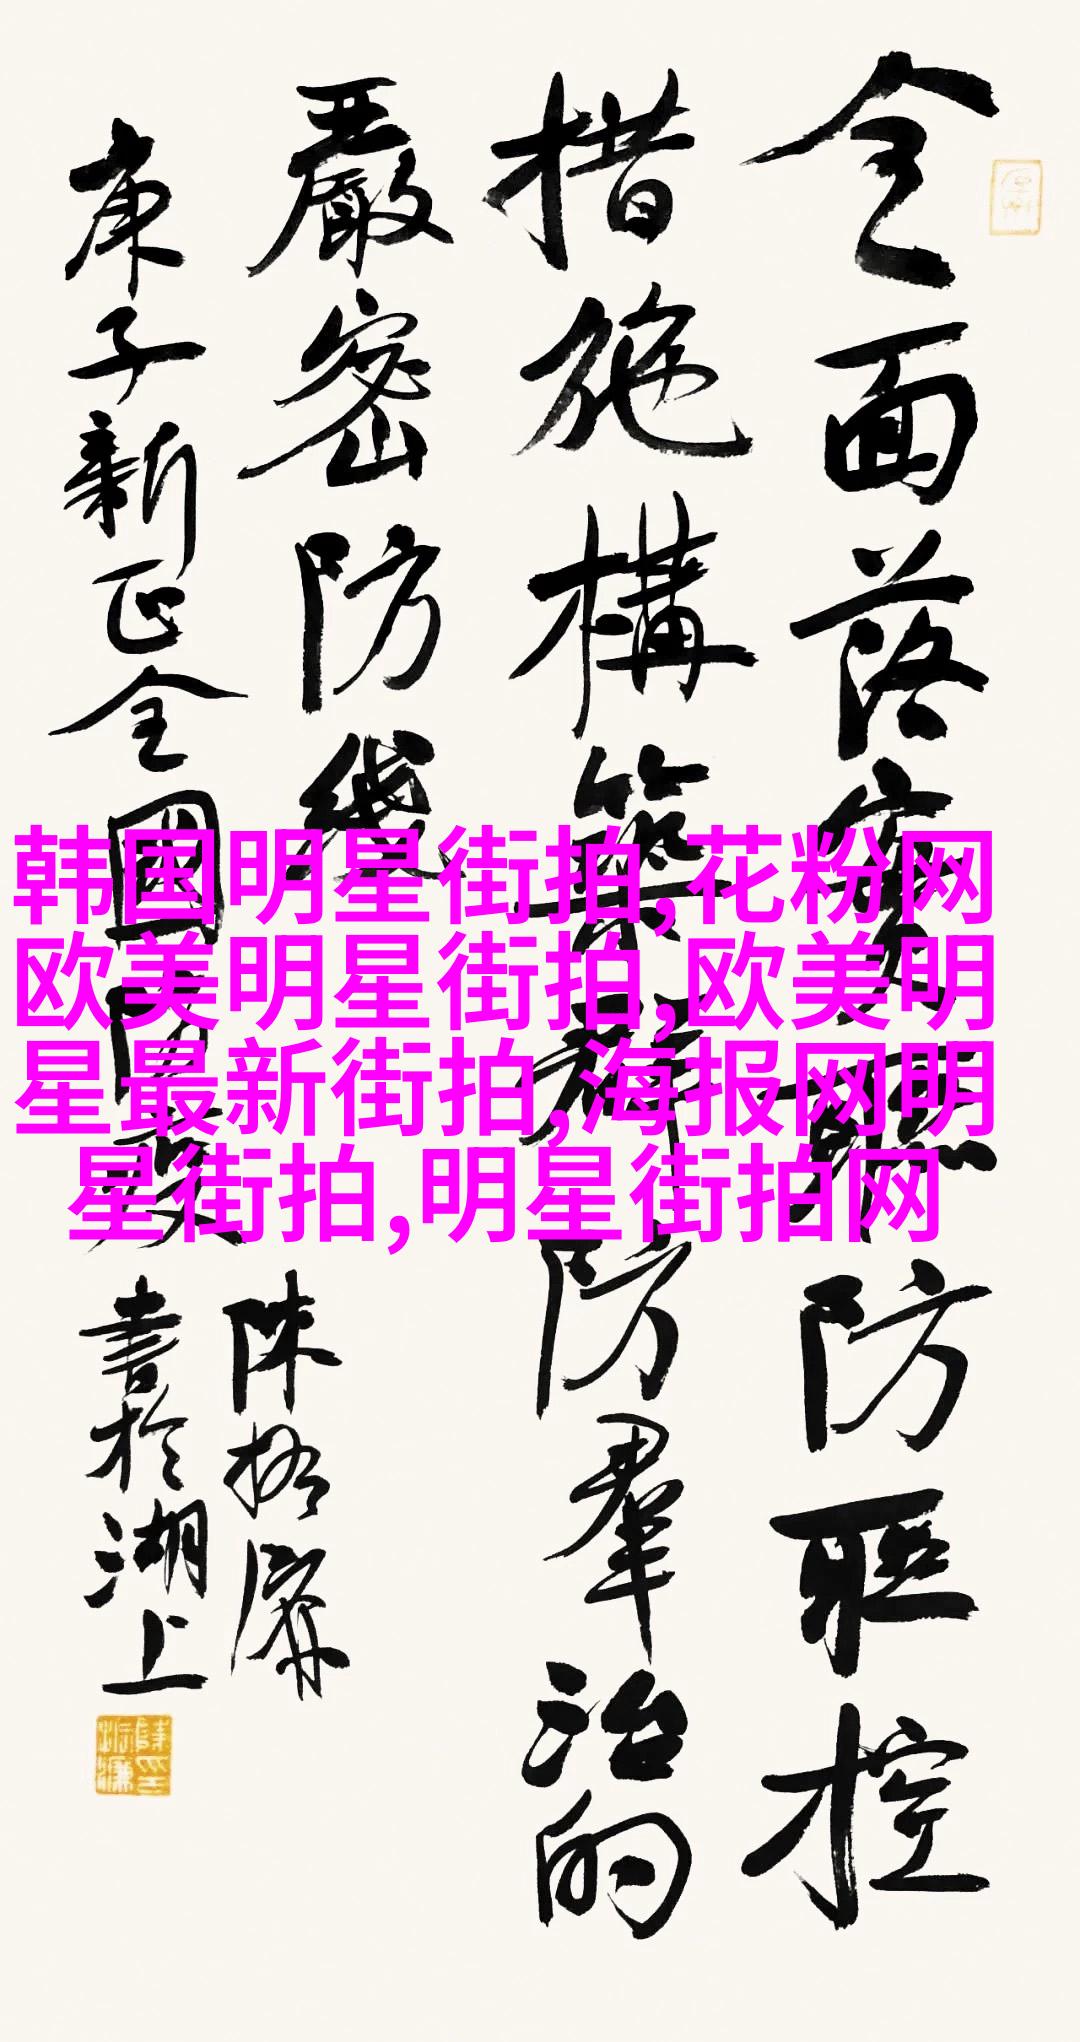 全面落實聯防聯控
措施構築群防羣治的
嚴密防线
庚子新正全國防疫
陈振濂
書於湖上
韩国明星街拍,花粉网
欧美明星街拍,欧美明
星最新街拍,海报网明
星街拍,明星街拍网